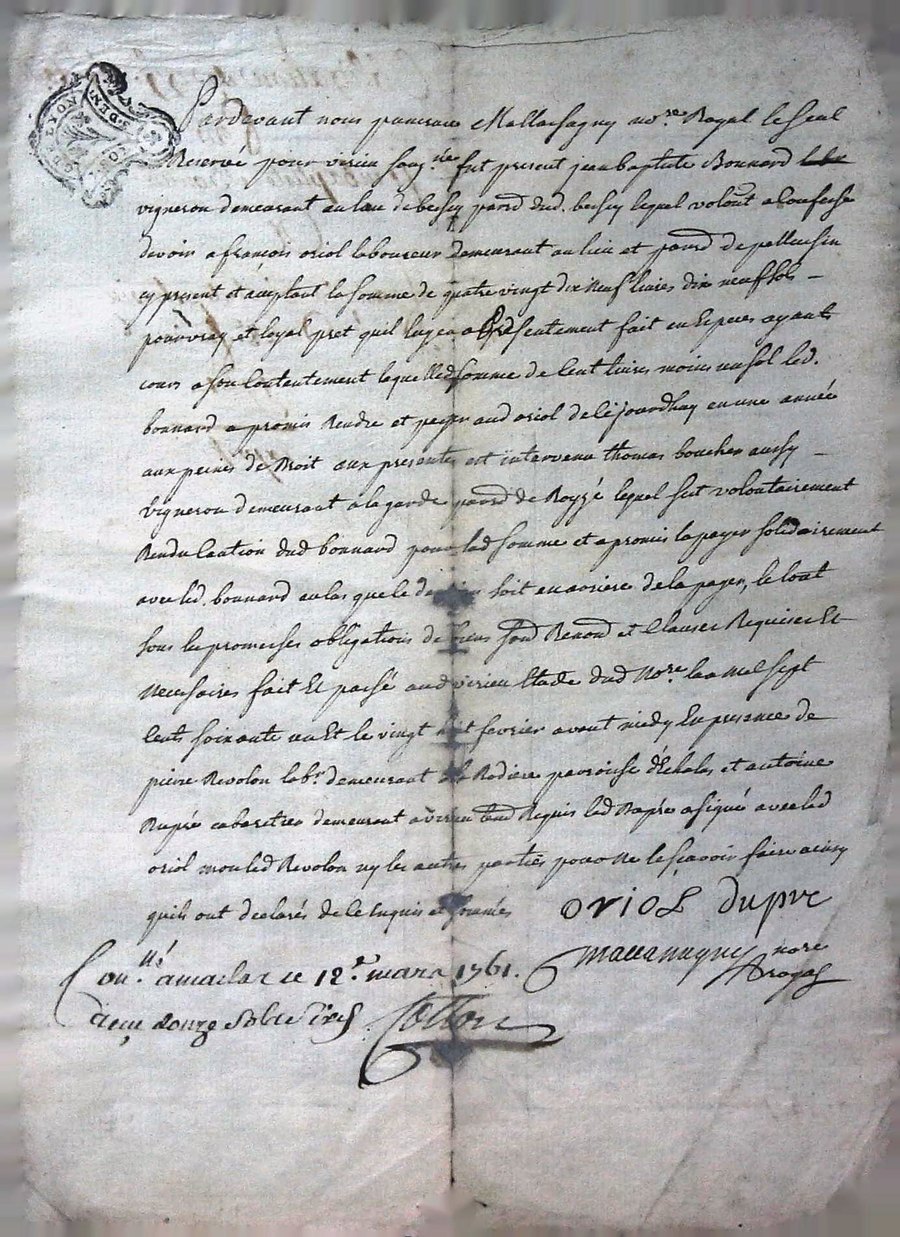 Pardevant nous Mallassagny no.re Royal le seul
Reservé pour virieu soug.né fut present jean baptiste Bonnard
vigneron demeurant au lieu de bessey parr.d dud. bessey lequel volont. a confessé
devoir a françois oriol laboureur demeurant au lieu et parr.d de pellussin
cy present et acceptant la somme de quatre vingt dix neuf livres dix neuf sols
pour vray et loyal pret quil luy a presentement fait en Especes ayants
cours a son Contentement laquelle d. somme de Cent livres moins un sol led.
bonnard a promis Rendre et payer aud oriol de ce jourdhuy en une année
aux peines de Droit aux presentes est intervenu thomas boucher aussy
vigneron demeurant a la garde parr.d de Royzé lequel sest volontairement
Rendu Caution dud bonnard pour lad somme et a promis la payer solidairement
avec led. bonnard au cas que le dernier soit en arriere de la payer, le tout
sous les promesses obligations de biens Renond et Clauses Requises Et
Necessaires fait Et passé aud virieu Etude dud No.re lan Mil sept
Cents soixante un Et le vingt huit fevrier avant midy En presence de
pierre Revolon lab.r demeurant a la Rodiere parroisse d'Echalas et antoine
Dupré cabaretier demeurant a virieu Requis led Dupré a signé avec led
oriol non led Revolon ny les autres parties pour ne le sçavoir faire ainsy
quils ont declarés de ce Enquis et sommés ORIOL dupre
Con.llé a maclas ce 12.e mars 1761. Mallassagny nore Royal
Reçu douze sols